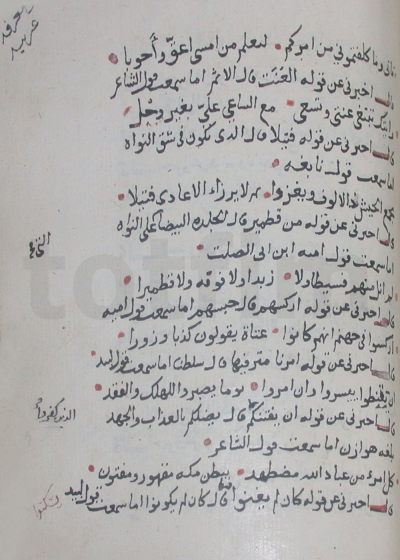 فانى وما كلفتمونى من امركم • ليعلم من امسى اعق وأحوبا •
قال اخبرنى عن قوله العنت قال الاثم اما سمعت قول الشاعر
رايتك تبتغى عنتى وتسعى • مع الساعى علىّ بغير ذحل
قال اخبرنى عن قوله فتيلا قال الذى يكون فى شق النواة
اما سمعت قول نابغه •
يجمع الجيش ذا الالوف ويغزوا • ثم لا يرزا الاعادى فتيلا •
قال اخبرنى عن قوله من قطمير قال الجلده البيضا على النواه
اما سمعت قول اميه ابن ابى الصلت •
لم انل منهم فسيطا ولا • زبدا ولا فوفه ولا قطميرا •
قال اخبرنى عن قوله اركسهم قال حبسهم اما سمعت قول اميه
اركسوا فى جهنم انهم كانوا • عتاة يقولون كذبا وزورا •
قال اخبرنى عن قوله امرنا مترفيها قال سلطنا اما سمعت قول لبيد
ان يغبطوا ييسروا وان امروا • يوما يصيروا للهلك والفقد •
قال اخبرنى عن قوله ان يفتنكم قال يضلكم بالعذاب والجهد
بلغه هوازن اما سمعت قول الشاعر •
كل امرء من عباد الله مضطهد • ببطن مكه مقهور ومفتون •
قال اخبرنى عن قوله كان لم يغنوا قال كان لم يكونوا اما سمعت قول لبيد
التى فى
الذين كفروا
totfim